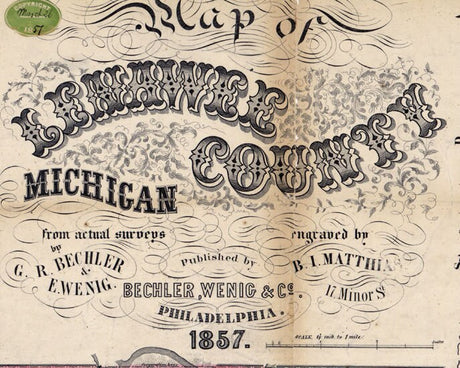 COPYRIGHT
1857
Map of
LENAWEE
COUNTY
MICHIGAN
from actual surveys
by
G. R. BECHLER
&
E. WENIG.
engraved by
B. I. MATTHIAS
17 Minor St
Published by
BECHLER, WENIG & Co.
PHILADELPHIA.
1857.
SCALE 1½ inch to 1 mile.